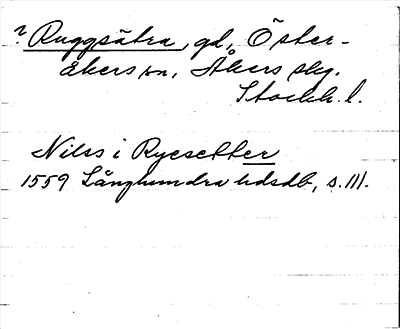 ? Ruggsätra, gd, Öster-
åkers sn, Åkers skg.
Stockh. l.
Nilss i Ryesetter
1559 Långhundra hdsdb, s. 111.